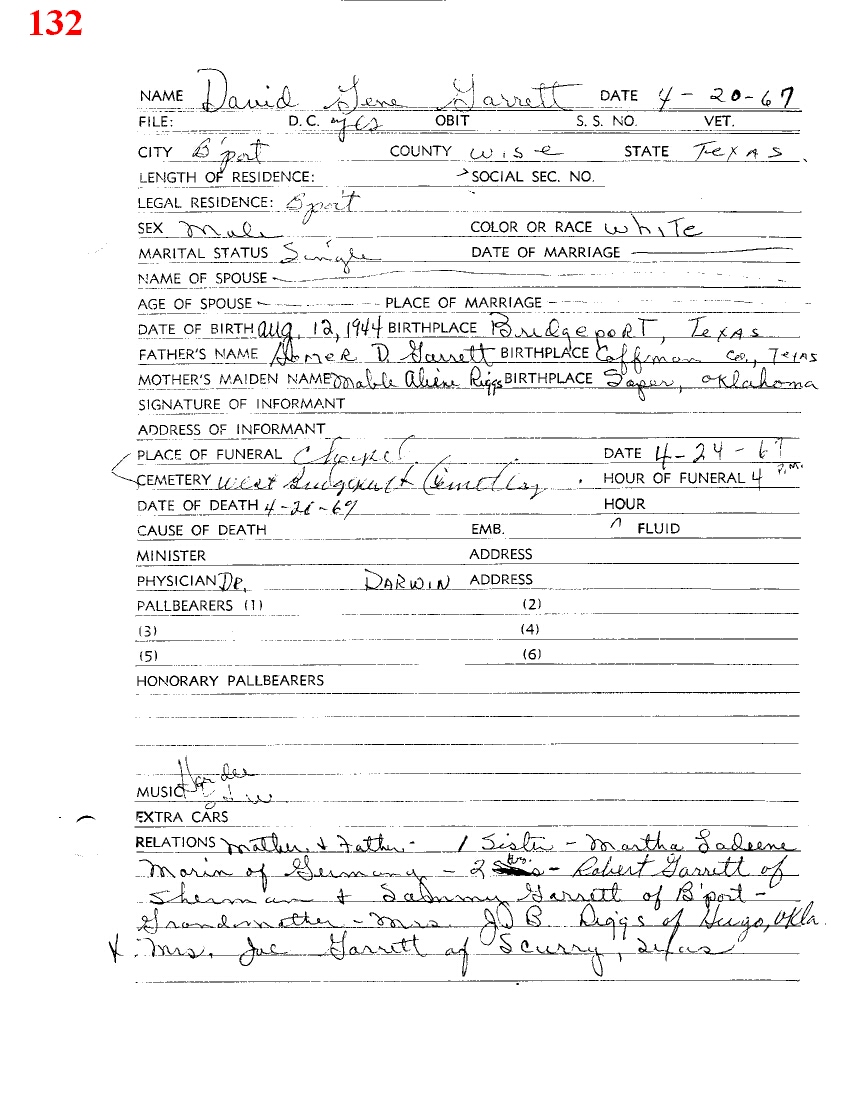 132
NAME David Gene Garrett DATE 4-20-67
FILE: D.C. yes OBIT S. S. NO. VET.
CITY B'port COUNTY Wise STATE Texas
LENGTH OF RESIDENCE: SOCIAL SEC. NO.
LEGAL RESIDENCE: B'port
SEX Male COLOR OR RACE White
MARITAL STATUS Single DATE OF MARRIAGE
NAME OF SPOUSE
AGE OF SPOUSE PLACE OF MARRIAGE
DATE OF BIRTH Aug. 12, 1944 BIRTHPLACE Bridgeport, Texas
FATHER'S NAME D. Garrett BIRTHPLACE Co., Texas
MOTHER'S MAIDEN NAME Mable Riggs BIRTHPLACE Soper, Oklahoma
SIGNATURE OF INFORMANT
ADDRESS OF INFORMANT
PLACE OF FUNERAL Chapel DATE 4-24-67
CEMETERY West Bridgeport Cemetery HOUR OF FUNERAL 4 P.M.
DATE OF DEATH HOUR
CAUSE OF DEATH EMB. FLUID
MINISTER ADDRESS
PHYSICIAN Dr. Darwin ADDRESS
PALLBEARERS (1) (2)
(3) (4)
(5) (6)
HONORARY PALLBEARERS
MUSIC
EXTRA CARS
RELATIONS Mother & Father - 1 Sister - Martha Ladeene
Morin of Germany - 2 bros. - Robert Garrett of
Sherman & Sammy Garrett of B'port -
Grandmother - Mrs. J B Riggs of Hugo, Okla.
Mrs. Joe Garrett of Scurry, Texas